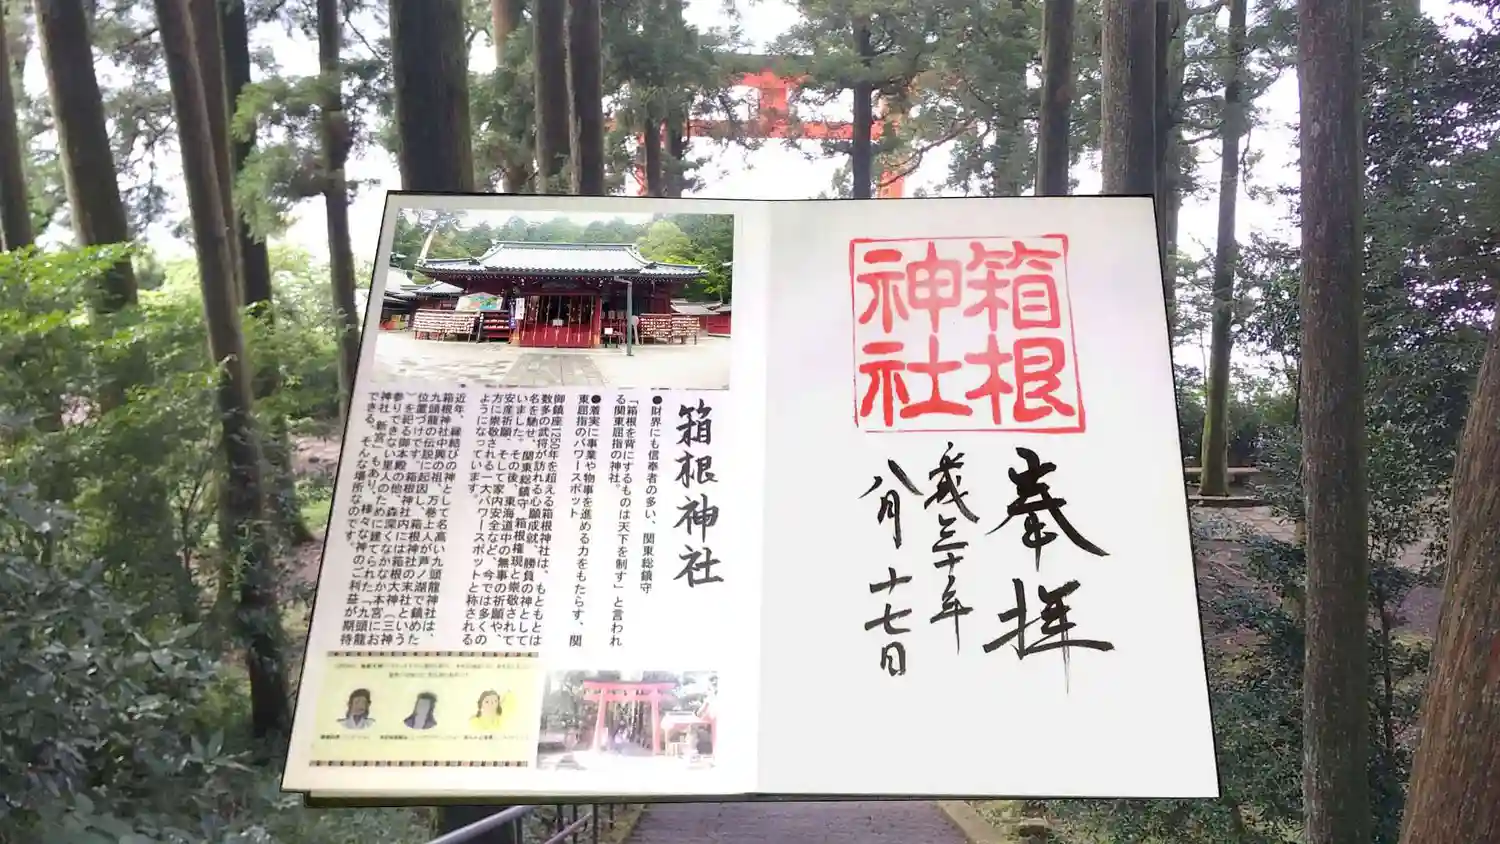 箱根神社
●財界にも信奉者の多い、関東総鎮守
「箱根を背にするものは天下を制す」と言われ
る関東屈指の神社。
●着実に事業や物事を進める力をもたらす、関
東屈指のパワースポット
御鎮座1250年を超える箱根神社は、もともとは
数多の武将が訪れる心願成就、勝負の神として
名を馳せ、関東総鎮守、箱根権現と崇敬されて
いました。その後、東海道中の無事の祈願や、
安産祈願、そして家内安全など、今では多くの
方に崇敬される一大パワースポットと称される
ようになっています。
近年、縁結びの神として名高い九頭龍神社は、
箱根神社中興の祖、万巻上人が芦ノ湖で鎮めた
九頭龍の伝説に起因し、箱根神社の末社という
位置づけです。箱根神社内には箱根大神（三神
）を祀る御本殿の他、森深くなかなか本宮にお
参りできない里人のために建てられた「九頭龍
神社 新宮」もあり、様々な神のご利益が期待
できる、そんな場所なのです。
箱根
神社
奉拝
平成三十年
八月十七日